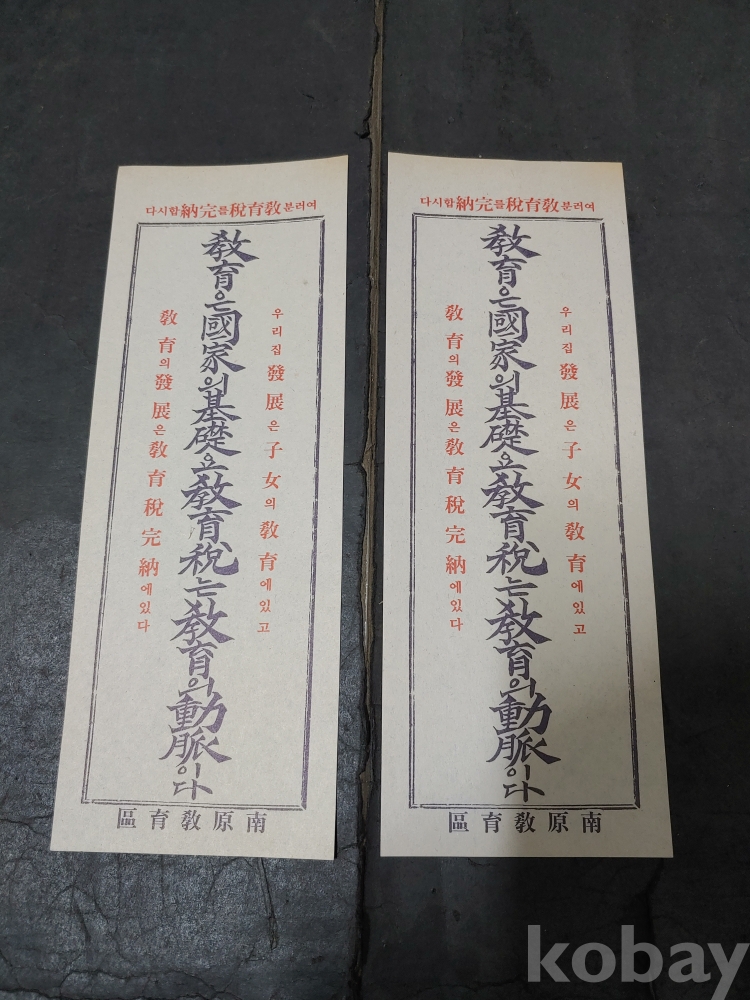 여러분敎育稅를完納합시다
우리집發展은子女의敎育에있고
敎育은國家의基礎요敎育稅는敎育의動脈이다
敎育의發展은敎育稅完納에있다
南原敎育區
여러분敎育稅를完納합시다
우리집發展은子女의敎育에있고
敎育은國家의基礎요敎育稅는敎育의動脈이다
敎育의發展은敎育稅完納에있다
南原敎育區
kobay